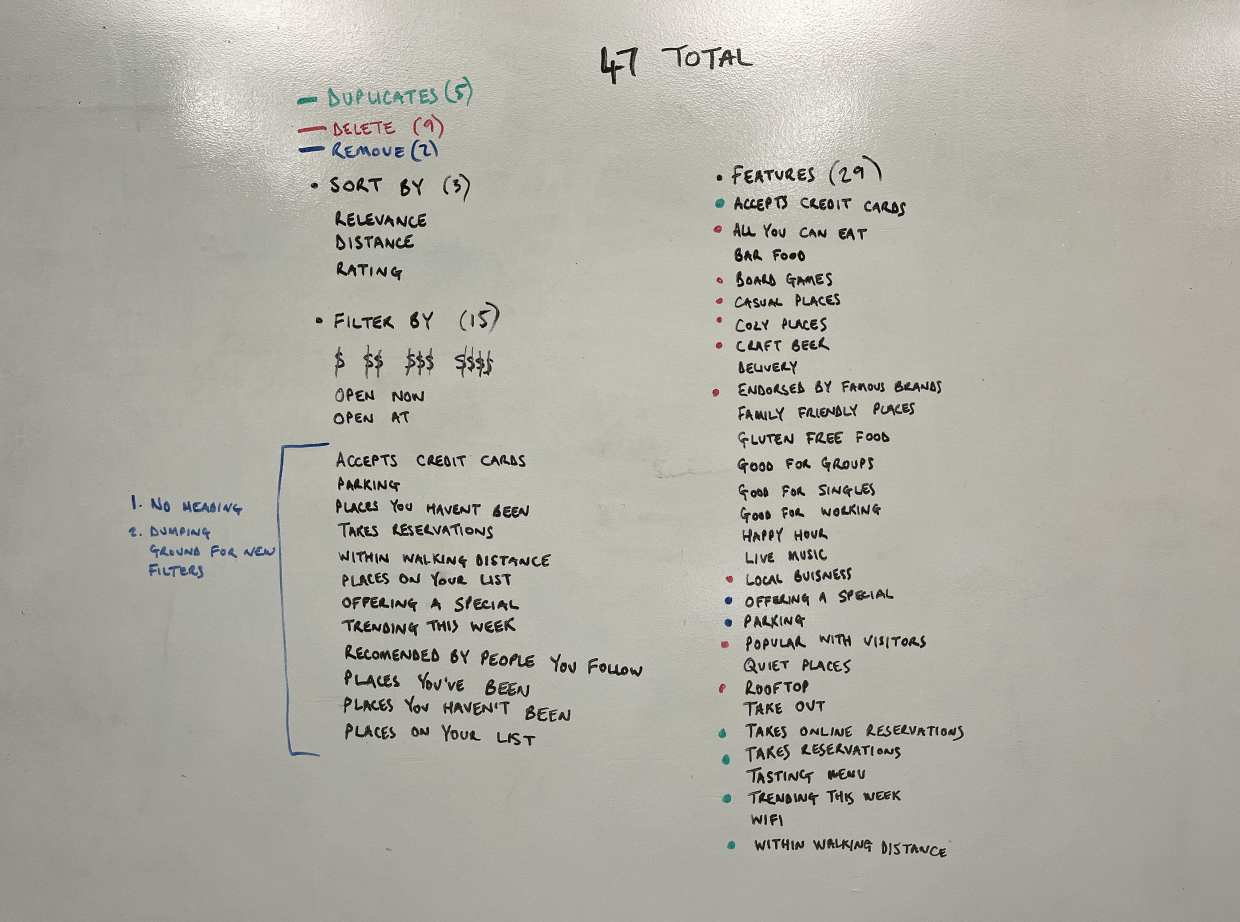 47 TOTAL
DUPLICATES (5)
DELETE (9)
REMOVE (2)
• SORT BY (3)
RELEVANCE
DISTANCE
RATING
• FILTER BY (15)
$ $$ $$$ $$$$
OPEN NOW
OPEN AT
ACCEPTS CREDIT CARDS
PARKING
PLACES YOU HAVENT BEEN
TAKES RESERVATIONS
WITHIN WALKING DISTANCE
PLACES ON YOUR LIST
OFFERING A SPECIAL
TRENDING THIS WEEK
RECOMENDED BY PEOPLE YOU FOLLOW
PLACES YOU'VE BEEN
PLACES YOU HAVEN'T BEEN
PLACES ON YOUR LIST
1. NO HEADING
2. DUMPING
GROUND FOR NEW
FILTERS
• FEATURES (29)
• ACCEPTS CREDIT CARDS
• ALL YOU CAN EAT
BAR FOOD
• BOARD GAMES
• CASUAL PLACES
• COZY PLACES
• CRAFT BEER
DELIVERY
• ENDORSED BY FAMOUS BRANDS
FAMILY FRIENDLY PLACES
GLUTEN FREE FOOD
GOOD FOR GROUPS
GOOD FOR SINGLES
GOOD FOR WORKING
HAPPY HOUR
LIVE MUSIC
• LOCAL BUISNESS
• OFFERING A SPECIAL
• PARKING
• POPULAR WITH VISITORS
QUIET PLACES
• ROOFTOP
TAKE OUT
• TAKES ONLINE RESERVATIONS
• TAKES RESERVATIONS
TASTING MENU
• TRENDING THIS WEEK
WIFI
• WITHIN WALKING DISTANCE